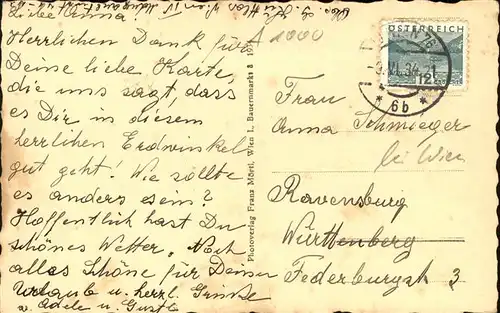 Liebe Anna
Herrlichen Dank für
Deine liebe Karte,
die uns sagt, dass
es Dir in diesem
herrlichen Erdwinkel
gut geht! Wie sollte
es anders sein?
Hoffentlich hast Du
schönes Wetter. Noch
alles Schöne für Deinen
Urlaub u. herzl. Grüsse
v. Adele u. Gustl
Photoverlag Franz Mörtl, Wien I., Bauernmarkt 3
A 1000
ÖSTERREICH
12
VI. 34
* 6b *
Frau
Anna Schmieger
bei Wien
Ravensburg
Württenberg
Federburgstr 3